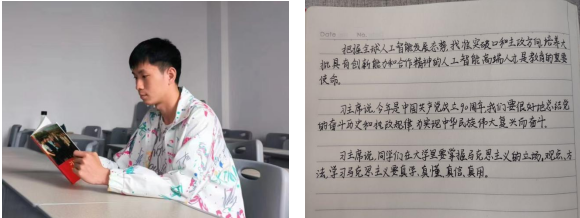 Date No.
把握全球人工智能发展态势,找准突破口和主攻方向,培养大
批具有创新能力和合作精神的人工智能高端人才,是教育的重要
使命。
习主席说,今年是中国共产党成立90周年,我们要很好地总结党
的奋斗历史和执政规律,为实现中华民族伟大复兴而奋斗。
习主席说,同学们在大学里要掌握马克思主义的立场、观点、方
法,学习马克思主义要真学、真懂、真信、真用。